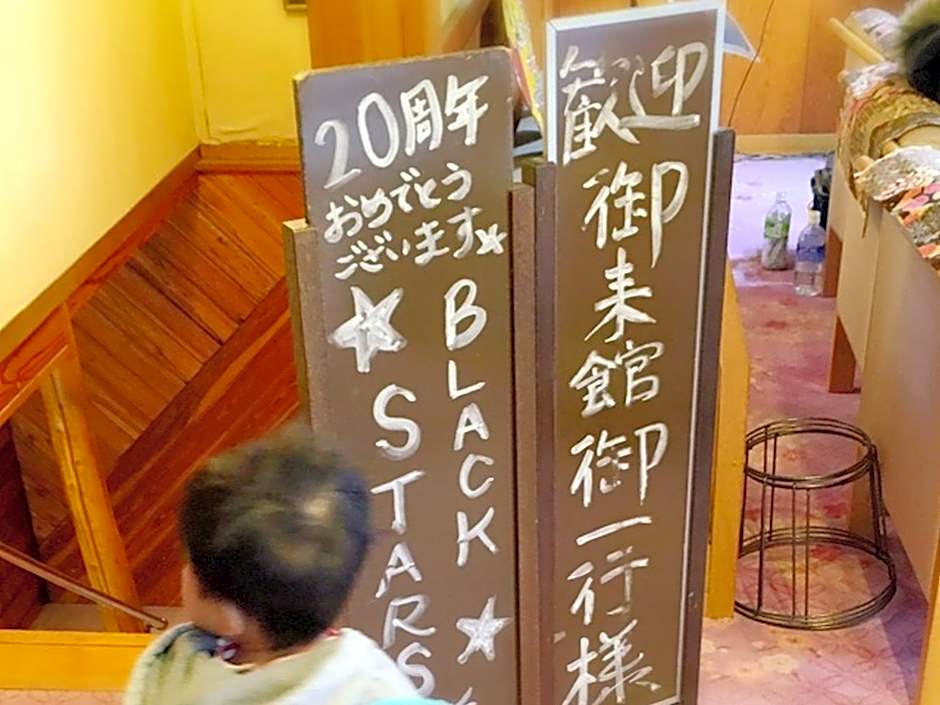 歓迎
御来館御一行様
20周年
おめでとう
ございます☆
BLACK☆
☆STARS